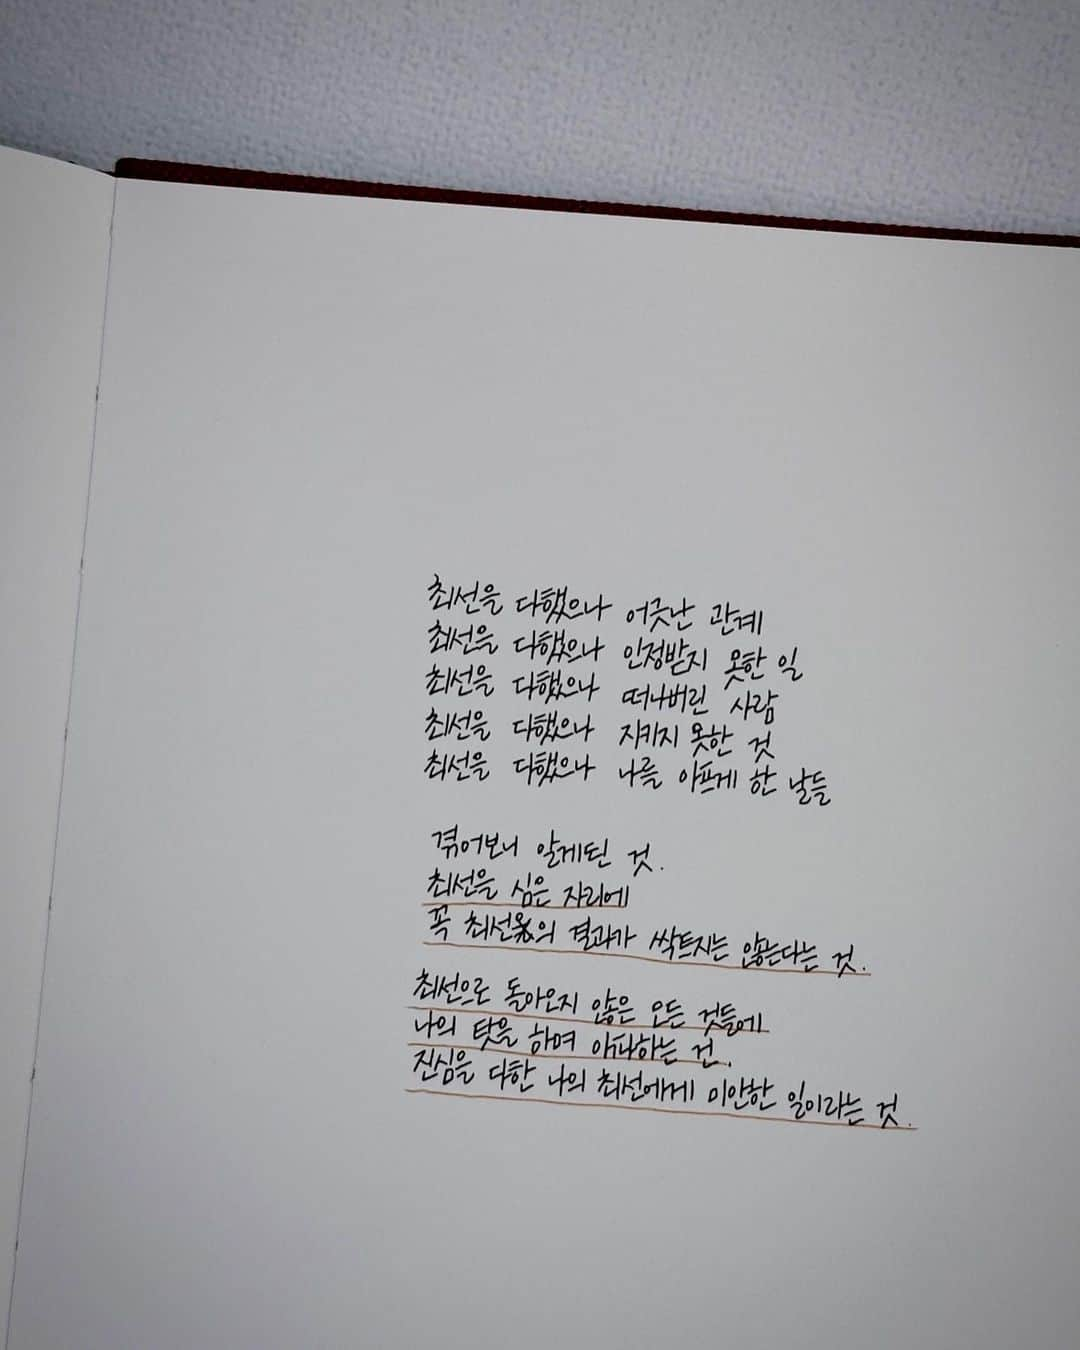 최선을 다했으나 어긋난 관계
최선을 다했으나 인정받지 못한 일
최선을 다했으나 떠나버린 사람
최선을 다했으나 지키지 못한 것
최선을 다했으나 나를 아프게 한 날들
겪어보니 알게된 것.
최선을 심은 자리에
꼭 최선의 결과가 싹트지는 않는다는 것.
최선으로 돌아오지 않은 모든 것들에
나의 탓을 하며 아파하는 건.
진심을 다한 나의 최선에게 미안한 일이라는 것.